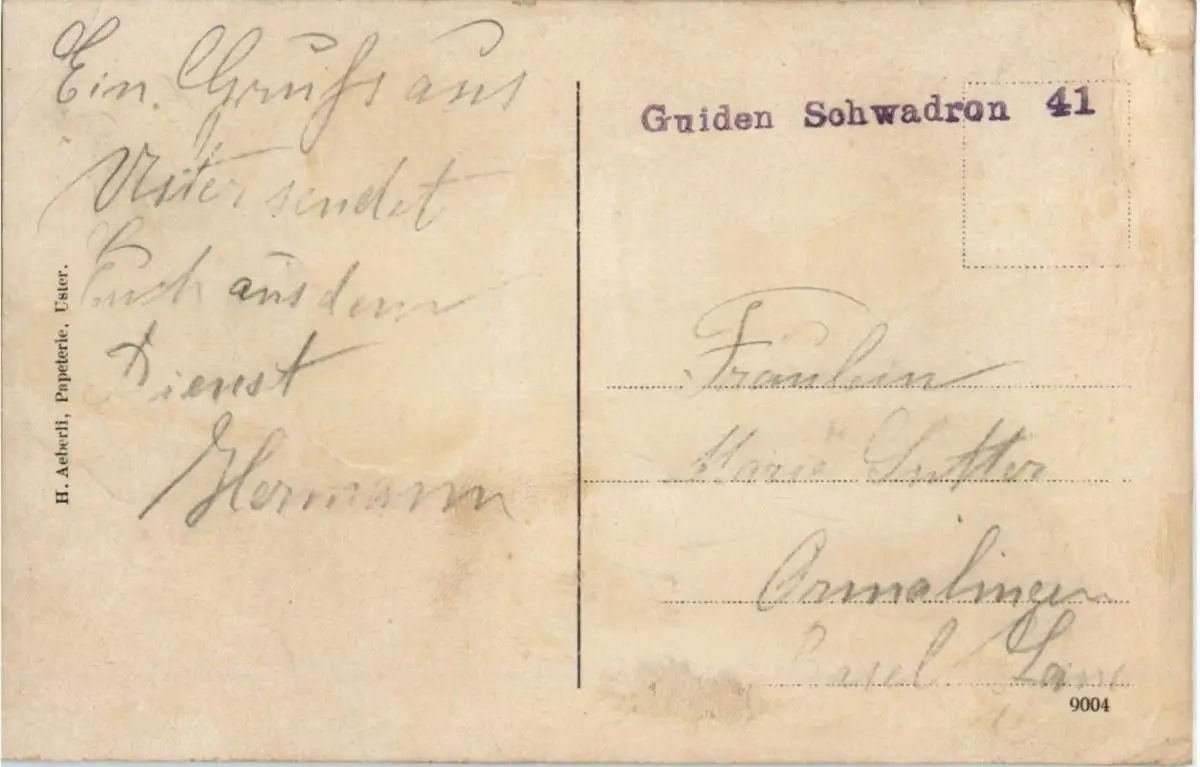 Ein Gruß aus
Uster sendet
Euch aus dem
Dienst
Hermann
H. Aeberli, Papeterie, Uster.
Guiden Schwadron 41
Fräulein
Marie Sutter
Ormalingen
Basel Land
9004